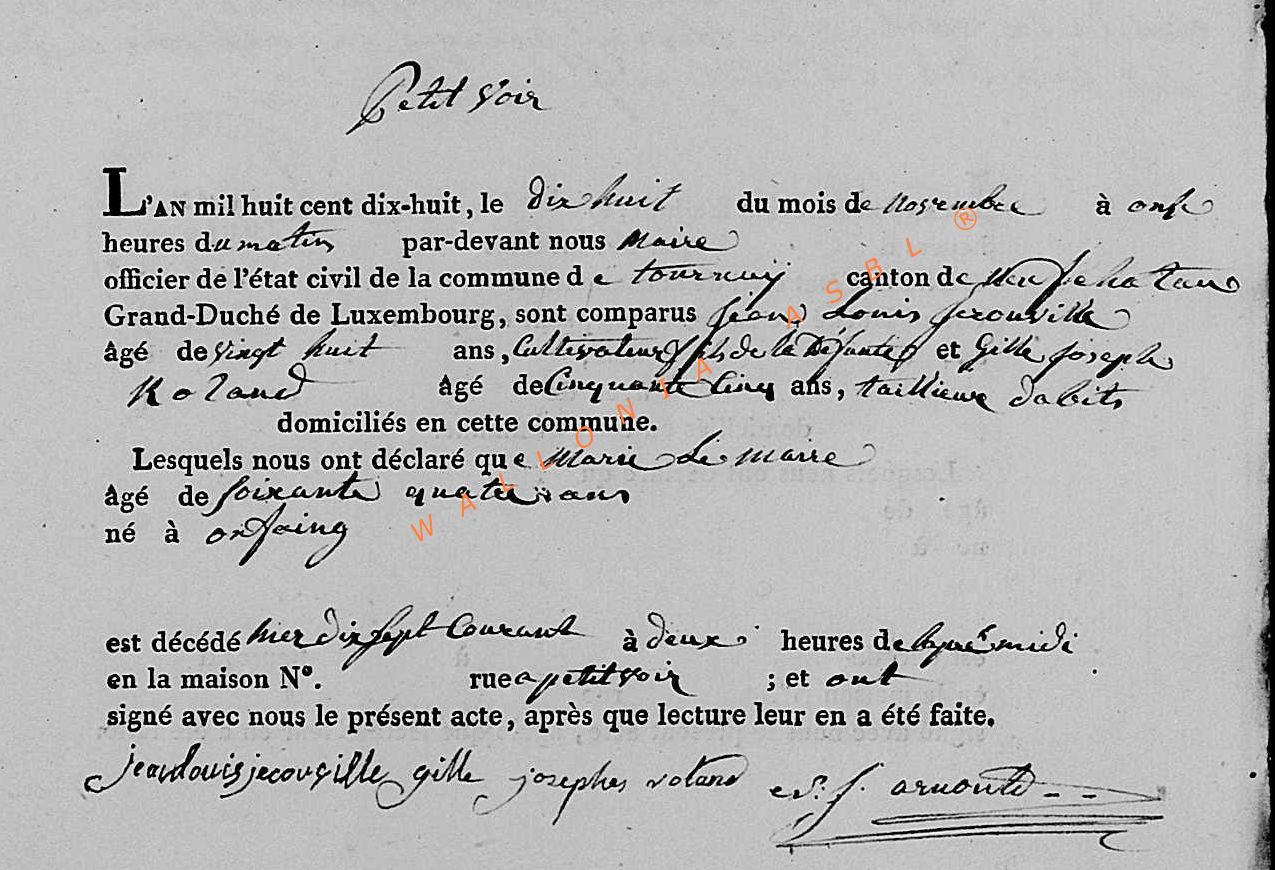 Petit Voir
L'AN mil huit cent dix-huit, le dix huit du mois de novembre à onse
heures du matin par-devant nous Maire
officier de l'état civil de la commune de tournay canton de Neufchatau
Grand-Duché de Luxembourg, sont comparus jean Louis
âgé de vingt huit ans, Cultivateur fils de la Défunte et Gille joseph
Roland âgé de Cinquante Cinq ans, taillieur dabits
domiciliés en cette commune.
Lesquels nous ont déclaré que Marie Le maire
âgé de soixante quatre ans
né à offaing
est décédé hier dix sept Courant à deux heures de
en la maison N°. rue a petit voir ; et ont
signé avec nous le présent acte, après que lecture leur en a été faite.
jean louis gille josephs roland arnould
WALLONIA ASBL ®